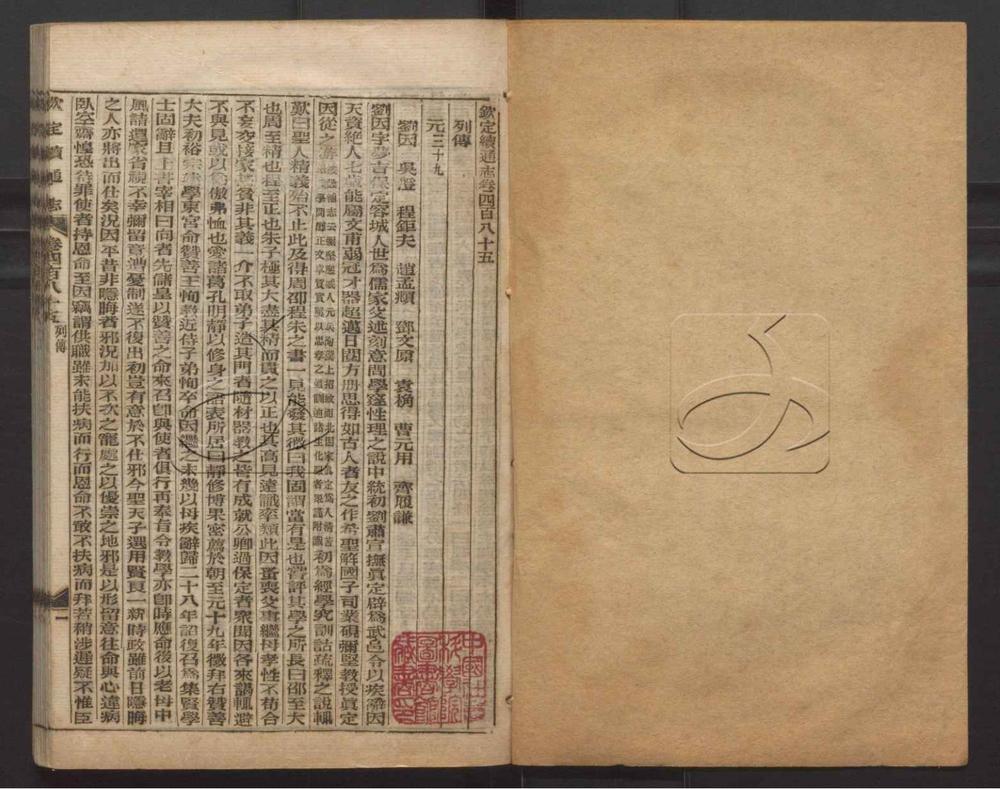 欽定續通志卷四百八十五
列傳
元三十九
劉因 吳澄 程鉅夫 趙孟頫 鄧文原 袁桷 曹元用 齊履謙
劉因字夢吉保定容城人世爲儒家父述刻意問學邃性理之說中統初劉肅宣撫眞定辟爲武邑令以疾辭因
天資絕人七歲能屬文甫弱冠才器超邁日閱方册思得如古人者友之作希聖解國子司業硯彌堅教授眞定
因從之游初爲經學究訓詁疏釋之說輒
歎曰聖人精義殆不止此及得周邵程朱之書一見能發其微曰我固謂當有是也嘗評其學之所長曰邵至大
也周至精也程至正也朱子極其大盡其精而貫之以正也其高見遠識率類此因蚤喪父事繼母孝性不苟合
不妄交接家雖貧非其義一介不取弟子造其門者隨材器教之皆有成就公卿過保定者衆聞因名來謁輒避
不與見或以爲傲弗恤也愛諸葛孔明靜以修身之語表所居曰靜修博果密薦於朝至元十九年徵拜右贊善
大夫初裕宗建學東宮命贊善王恂教近侍子弟恂卒命因繼之未幾以母疾辭歸二十八年詔復召爲集賢學
士固辭且上書宰相曰向者先儲皇以贊善之命來召卽與使者俱行再奉旨令教學亦卽時應命後以老母中
風請還家省視不幸彌留竟遭憂制遂不復出初豈有意於不仕邪今聖天子選用賢良一新時政雖前日隱晦
之人亦將出而仕矣況因平昔非隱晦者邪況加以不次之寵處之以優崇之地邪是以形留意往命與心違病
臥空齋惶恐待罪使者持恩命至因竊謂供職雖未能扶病而行而恩命不敢不扶病而拜若稍涉遲疑不惟臣
欽定續通志 卷四百八十五 列傳 一